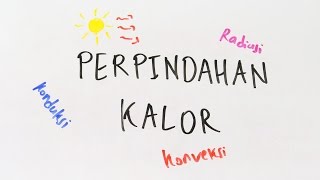 Radiasi
PERPINDAHAN
Konduksi
KALOR
Konveksi